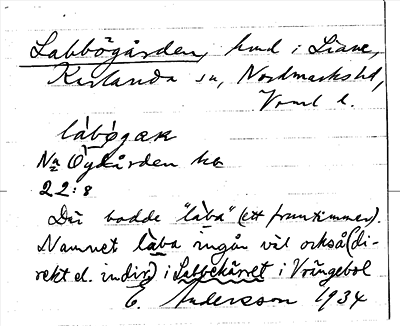 Labbögården, hmd i Liane,
Karlanda sn, Nordmarks hd,
Vrml l.
làbøgaɶn
Na Ögården ka
22:8
Där bodde "làba" (ett fruntimmer).
Namnet làba ingår väl också (di-
rekt el. indir) i Labbekärret i Vrängebol
E. Andersson 1934